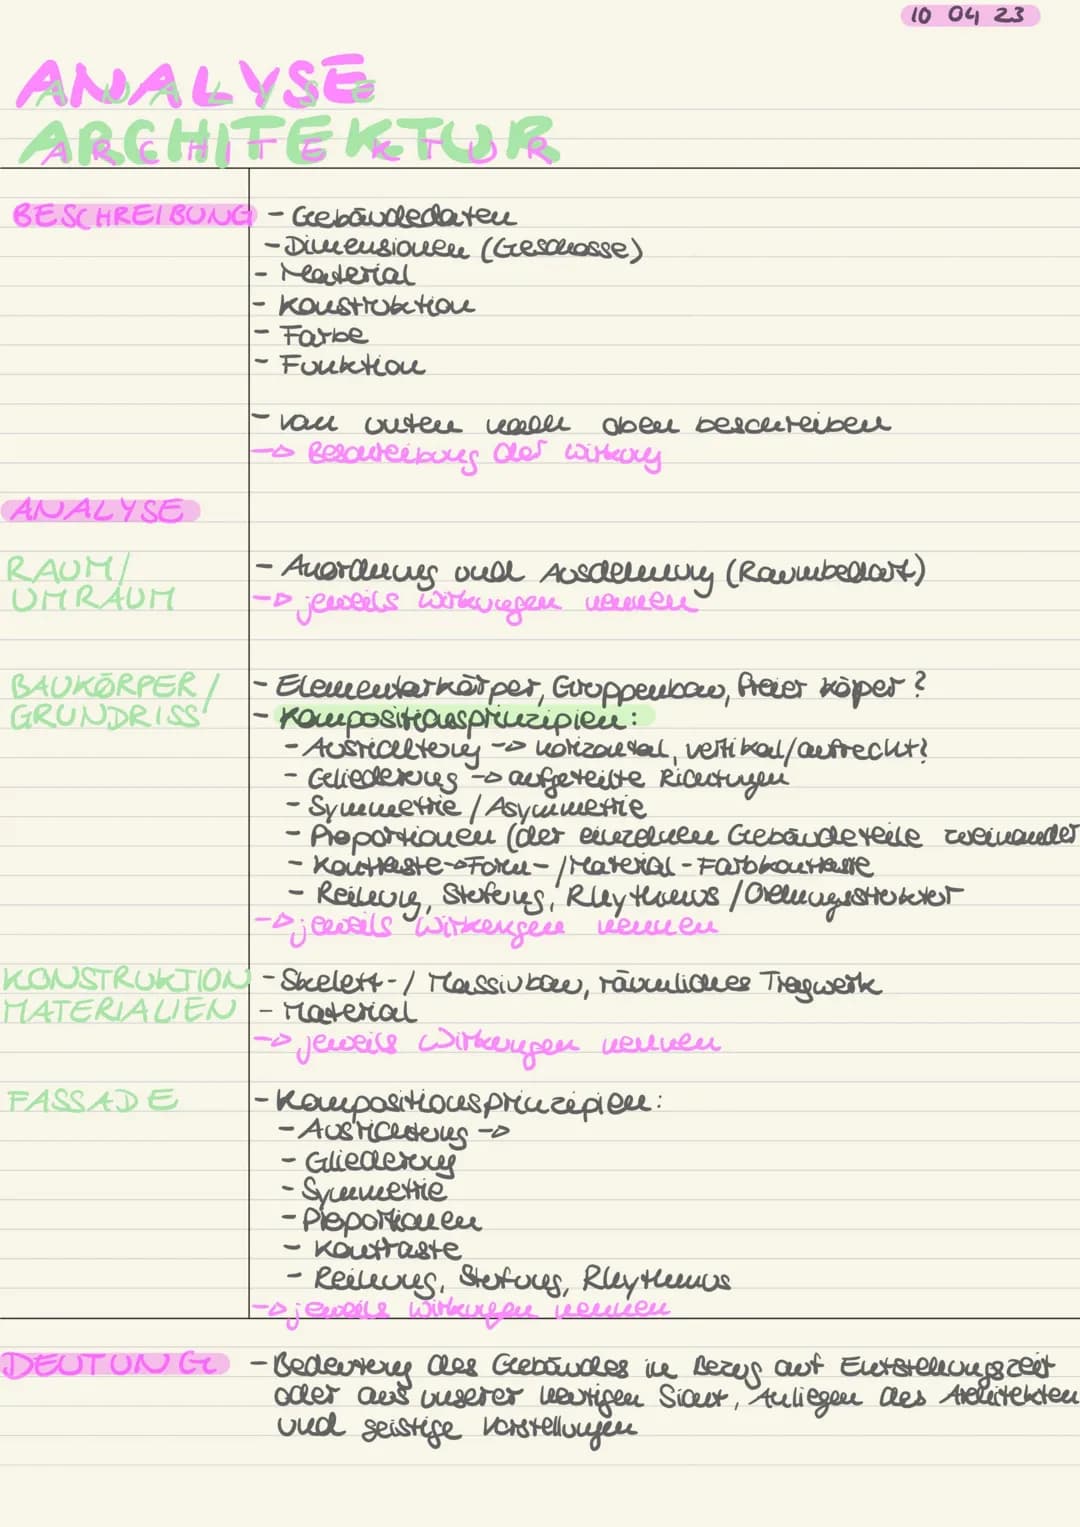 10 04 23
ANALYSE
ANALYSE
ARCHITEKTUR
ARCHITEKTUR
BESCHREIBUNG - Gebäudedaten
- Dimensionen (Geschosse)
- Material
- Konstruktion
- Farbe
- Funktion
- von unten nach oben beschreiben
-> Beschreibung der Wirkung
ANALYSE
RAUM/ - Anordnung und Ausdehnung (Raumbedarf)
UMRAUM -> jeweils Wirkungen nennen
BAUKÖRPER/ - Elementarkörper, Gruppenbau, freier Körper?
GRUNDRISS - Kompositionsprinzipien:
- Ausrichtung -> horizontal, vertikal/aufrecht?
- Gliederung -> aufgeteilte Richtungen
- Symmetrie / Asymmetrie
- Proportionen (der einzelnen Gebäudeteile zueinander
- Kontraste -> Form- / Material - Farbkontraste
- Reihung, Stufung, Rhythmus / Ordnungsstruktur
-> jeweils Wirkungen nennen
KONSTRUKTION - Skelett- / Massivbau, räumliches Tragwerk
MATERIALIEN - Material
-> jeweils Wirkungen nennen
FASSADE - Kompositionsprinzipien:
- Ausrichtung ->
- Gliederung
- Symmetrie
- Proportionen
- Kontraste
- Reihung, Stufung, Rhythmus
-> jeweils Wirkungen nennen
DEUTUNG - Bedeutung des Gebäudes in Bezug auf Entstehungszeit
oder aus unserer heutigen Sicht, Anliegen des Architekten
und geistige Vorstellungen